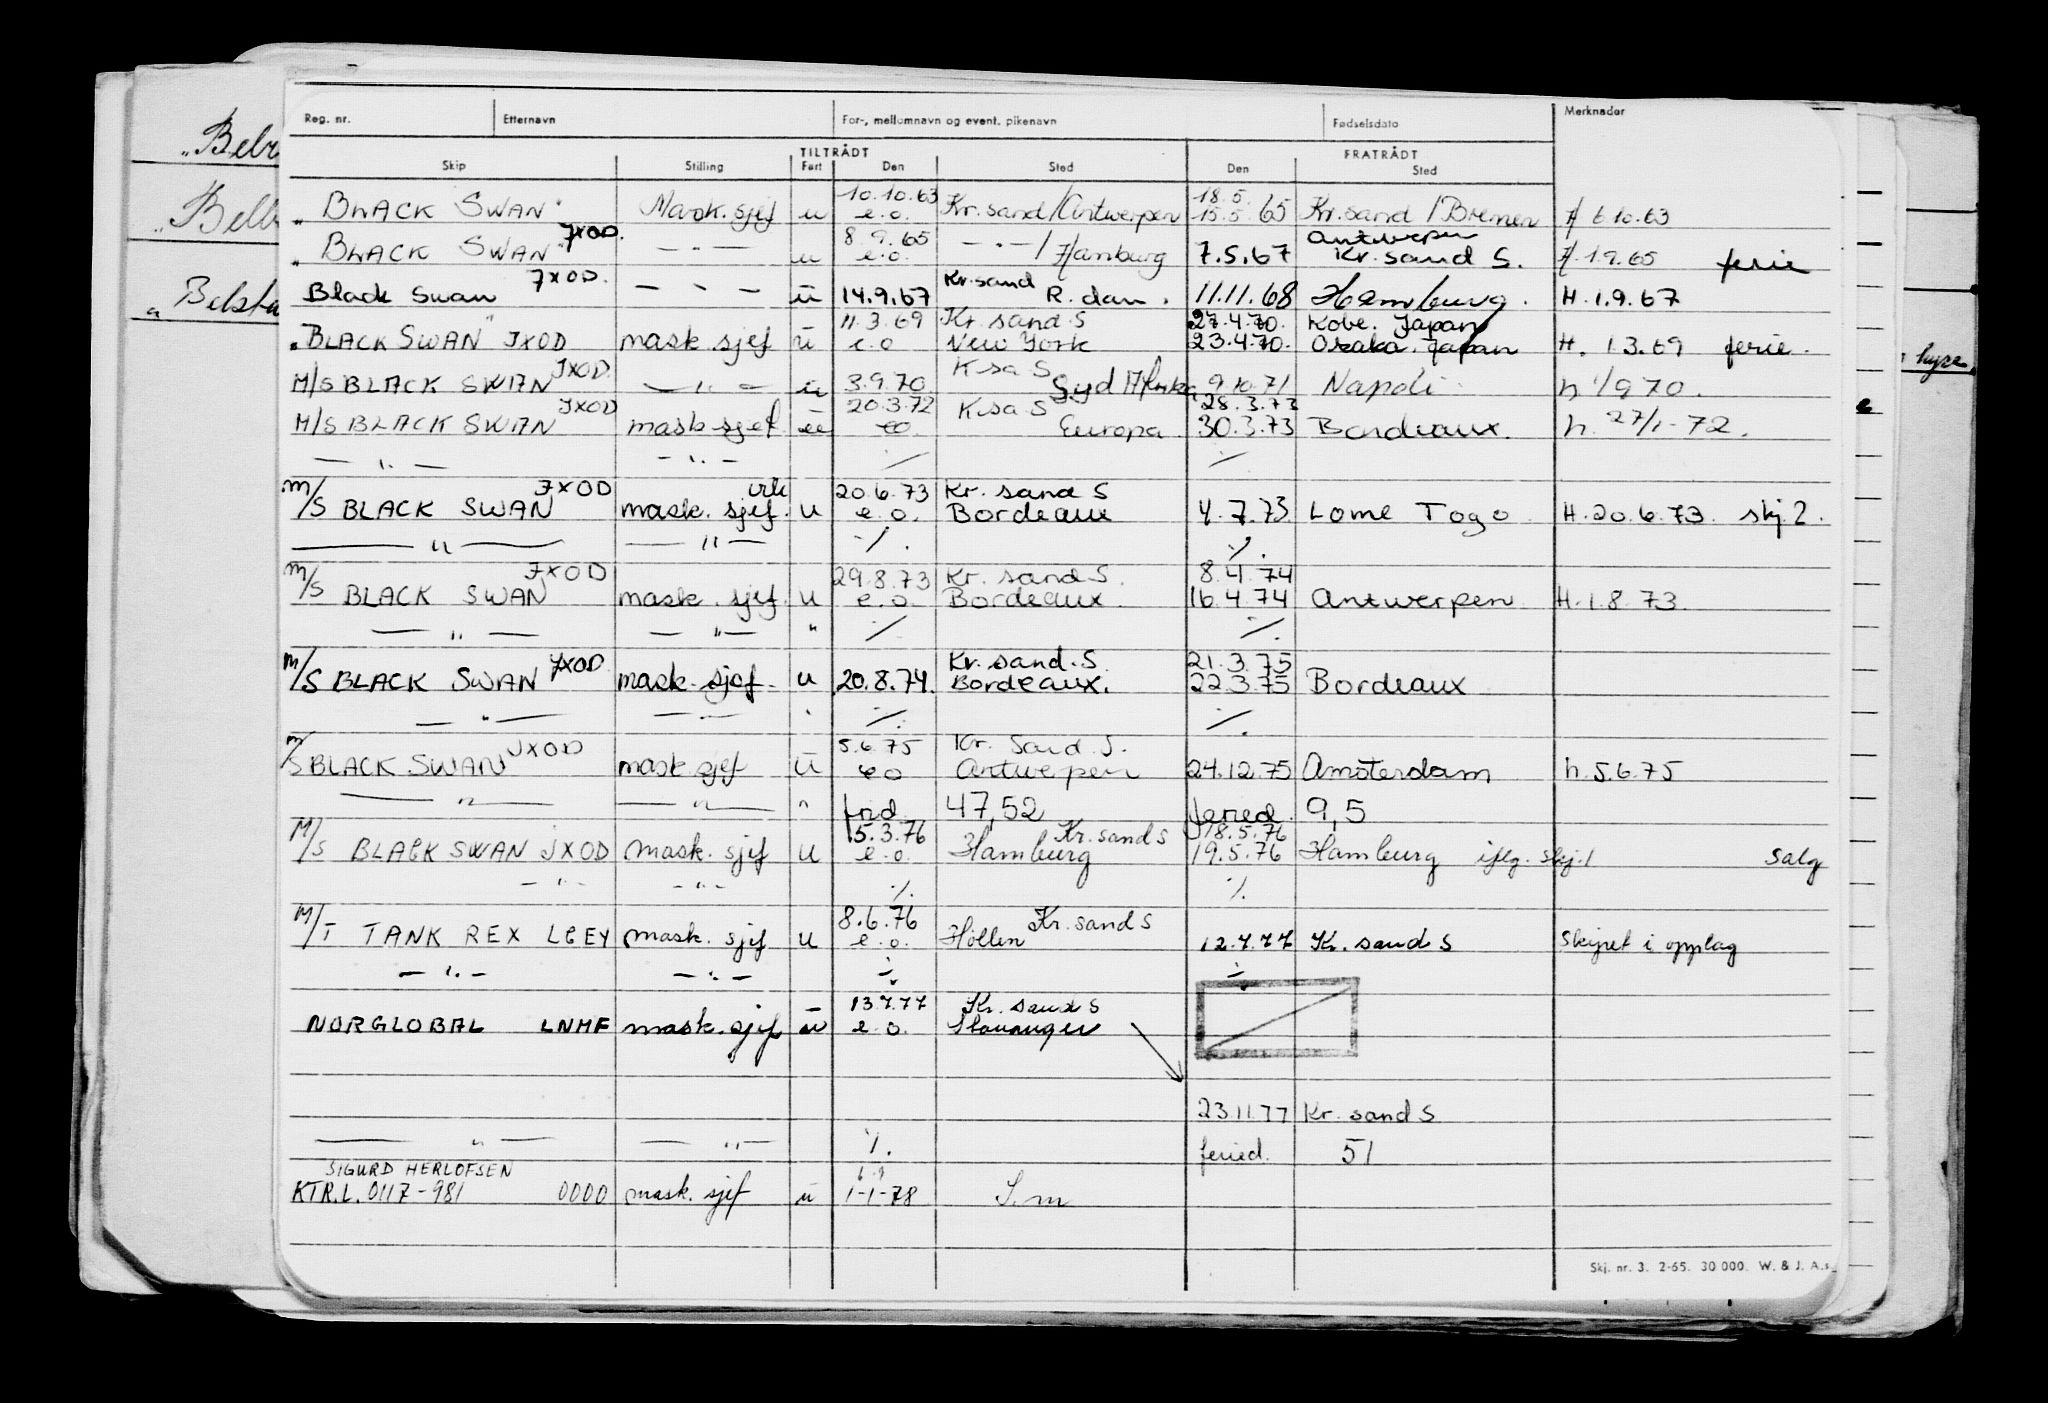 Reg. nr. Etternavn For-, mellomnavn og event. pikenavn Fødselsdato Merknader
TILTRÅDT FRATRÅDT
Skip Stilling Fart Den Sted Den Sted
"Belr
"Belb
"Belsta
hyre
10.10.63 18.5.
"BLACK SWAN" Mask. sjef u e.o. Kr.sand/Antwerpen 15.5.65 Kr.sand/Bremen H 6.10.63
JXOD. 8.9.65 Antwerpen
"BLACK SWAN" — . — u e.o. — . — / Hamburg 7.5.67 Kr. sand S. H. 1.9.65 ferie
JXOD. Kr.sand
Black Swan — " — ü 14.9.67 R.dam. 11.11.68 Hamburg. H. 1.9.67
11.3.69 Kr. sand S 27.4.70. Kobe. Japan
"BLACK SWAN" JXOD mask. sjef ü e.o New York 23.4.70. Osaka. Japan H. 1.3.69 ferie.
JXOD. K sa S
M/S BLACK SWAN — " — u 3.9.70 Syd Afrika 9.10.71 Napoli h 1/9 70.
JXOD 20.3.72 K.sa S 28.3.73
M/S BLACK SWAN mask sjef. eo Europa 30.3.73 Bordeaux. h. 27/1-72.
— " — — " — ./. ./.
JXOD 20.6.73 Kr. sand S
M/S BLACK SWAN mask. sjef. u e.o. Bordeaux 4.7.73 Lome Togo H. 20.6.73. skj 2.
— " — — " — ./. ./.
JXOD 29.8.73 Kr. sand S. 8.4.74
M/S BLACK SWAN mask. sjef. u e.o. Bordeaux. 16.4.74 Antwerpen H. 1.8.73.
— " — — " — " ./. ./.
JXOD Kr. sand. S 21.3.75
M/S BLACK SWAN mask. sjef. u 20.8.74. Bordeaux. 22.3.75 Bordeaux
— " — — " — ./. ./.
JXOD 5.6.75 Kr. Sand S.
M/S BLACK SWAN mask sjef ü eo Antwerpen 24.12.75 Amsterdam h. 5.6.75
— " — — " — " frid 47,52 feried. 9,5
15.3.76 Kr. sand S 18.5.76
M/S BLACK SWAN JXOD mask. sjef u e.o. Hamburg 19.5.76 Hamburg iflg. skj.1 salg
— " — — " — ./. ./.
8.6.76 Kr. sand S
M/T TANK REX LCEY mask. sjef u e.o. Höllen 12.7.77 Kr. sand S Skipet i opplag
— " — — " — ./. ./.
13.7.77 Kr. sand S
NORGLOBAL LNMF mask. sjef e.o. Stavanger
23.11.77 Kr. sand S
— " — — " — ./. feried. 51
SIGURD HERLOFSEN
KTR.L. 0117-981 0000 mask. sjef ü 1-1-78 S.m
Skj. nr. 3. 2-65. 30 000. W. & J. A.s.